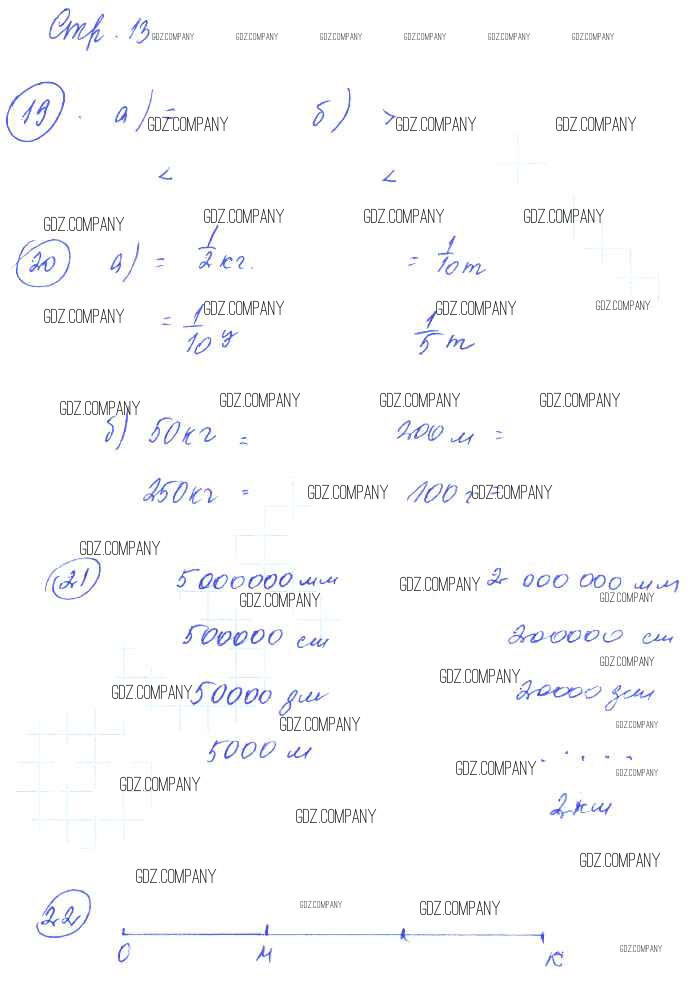 Стр. 13 GDZ.COMPANY GDZ.COMPANY GDZ.COMPANY GDZ.COMPANY GDZ.COMPANY GDZ.COMPANY
19. а) = б) >
GDZ.COMPANY GDZ.COMPANY GDZ.COMPANY
< <
GDZ.COMPANY GDZ.COMPANY GDZ.COMPANY GDZ.COMPANY
20 а) = 1/2 кг. = 1/10 т
GDZ.COMPANY GDZ.COMPANY GDZ.COMPANY GDZ.COMPANY
= 1/10 ц 1/5 т
GDZ.COMPANY GDZ.COMPANY GDZ.COMPANY GDZ.COMPANY
б) 50 кг = 200 м =
250 кг = GDZ.COMPANY 100 г = GDZ.COMPANY
GDZ.COMPANY
21 5 000000 мм GDZ.COMPANY 2 000 000 мм
GDZ.COMPANY GDZ.COMPANY
500000 см 200000 см
GDZ.COMPANY
GDZ.COMPANY 50000 дм GDZ.COMPANY 20000 дм
GDZ.COMPANY GDZ.COMPANY
5000 м . . . . .
GDZ.COMPANY GDZ.COMPANY
GDZ.COMPANY
2 км
GDZ.COMPANY
GDZ.COMPANY
GDZ.COMPANY
22 GDZ.COMPANY GDZ.COMPANY
О М К
GDZ.COMPANY